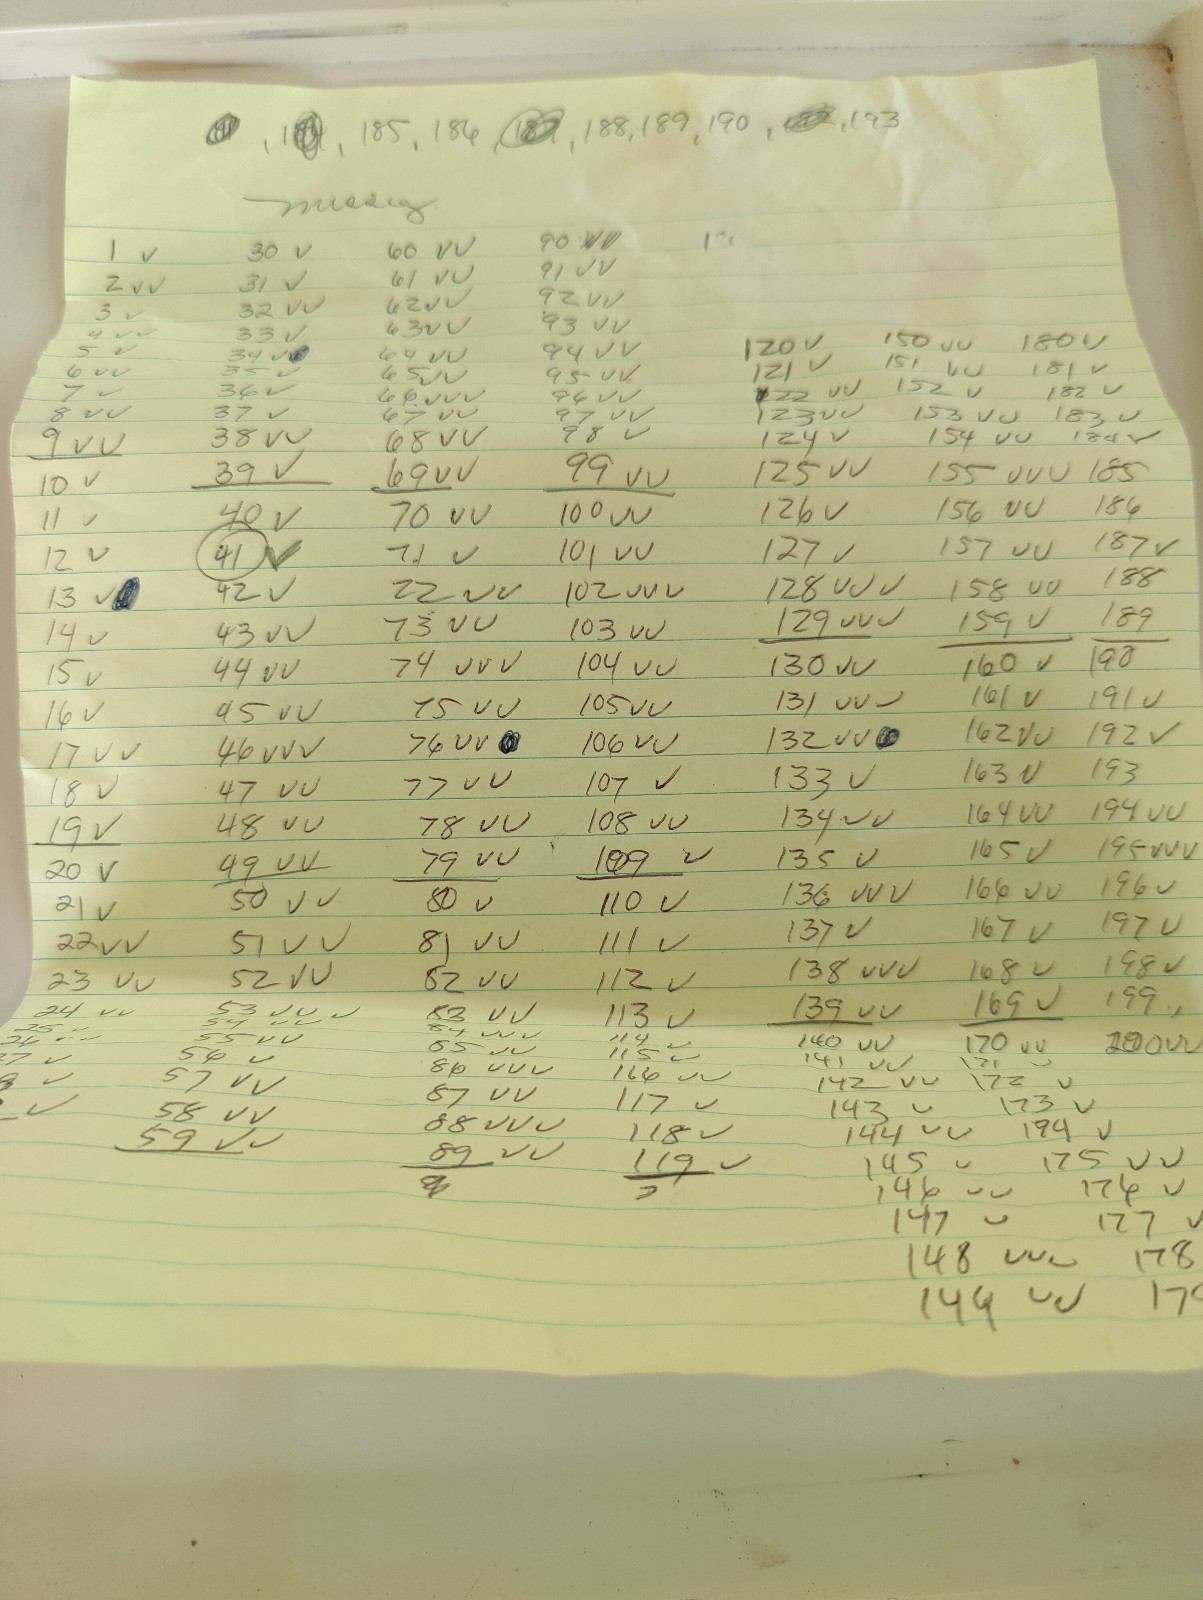 , 184, 185, 186, 187, 188, 189, 190, , 193
missing
1 ✓ 30 ✓ 60 ✓✓ 90 ✓✓
2 ✓✓ 31 ✓ 61 ✓✓ 91 ✓✓
3 ✓ 32 ✓✓ 62 ✓✓ 92 ✓✓
4 ✓✓ 33 ✓ 63 ✓✓ 93 ✓✓ 120 ✓ 150 ✓✓ 180 ✓
5 ✓ 34 ✓ 64 ✓✓ 94 ✓✓ 121 ✓ 151 ✓✓ 181 ✓
6 ✓✓ 35 ✓ 65 ✓✓ 95 ✓✓ 122 ✓✓ 152 ✓ 182 ✓
7 ✓ 36 ✓ 66 ✓✓✓ 96 ✓✓ 123 ✓✓ 153 ✓✓ 183 ✓
8 ✓✓ 37 ✓ 67 ✓✓ 97 ✓✓ 124 ✓ 154 ✓✓ 184 ✓
9 ✓✓ 38 ✓✓ 68 ✓✓ 98 ✓ 125 ✓✓ 155 ✓✓✓ 185
10 ✓ 39 ✓ 69 ✓✓ 99 ✓✓ 126 ✓ 156 ✓✓ 186
11 ✓ 40 ✓ 70 ✓✓ 100 ✓✓ 127 ✓ 157 ✓✓ 187 ✓
12 ✓ 41 ✓ 71 ✓ 101 ✓✓ 128 ✓✓✓ 158 ✓✓ 188
13 ✓ 42 ✓ 72 ✓✓ 102 ✓✓✓ 129 ✓✓✓ 159 ✓ 189
14 ✓ 43 ✓✓ 73 ✓✓ 103 ✓✓ 130 ✓✓ 160 ✓ 190
15 ✓ 44 ✓✓ 74 ✓✓✓ 104 ✓✓ 131 ✓✓✓ 161 ✓ 191 ✓
16 ✓ 45 ✓✓ 75 ✓✓ 105 ✓✓ 132 ✓✓ 162 ✓✓ 192 ✓
17 ✓✓ 46 ✓✓✓ 76 ✓✓ 106 ✓✓ 133 ✓ 163 ✓ 193
18 ✓ 47 ✓✓ 77 ✓✓ 107 ✓ 134 ✓✓ 164 ✓✓ 194 ✓✓
19 ✓ 48 ✓✓ 78 ✓✓ 108 ✓✓ 135 ✓ 165 ✓ 195 ✓✓✓
20 ✓ 49 ✓✓ 79 ✓✓ 109 ✓ 136 ✓✓✓ 166 ✓✓ 196 ✓
21 ✓ 50 ✓✓ 80 ✓ 110 ✓ 137 ✓ 167 ✓ 197 ✓
22 ✓✓ 51 ✓✓ 81 ✓✓ 111 ✓ 138 ✓✓✓ 168 ✓ 198 ✓
23 ✓✓ 52 ✓✓ 82 ✓✓ 112 ✓ 139 ✓✓ 169 ✓ 199
24 ✓✓ 53 ✓✓✓ 83 ✓✓ 113 ✓ 140 ✓✓ 170 ✓✓ 200 ✓✓
25 ✓ 54 ✓✓ 84 ✓✓✓ 114 ✓ 141 ✓✓ 171 ✓
26 ✓✓ 55 ✓✓ 85 ✓✓ 115 ✓ 142 ✓✓ 172 ✓
27 ✓ 56 ✓ 86 ✓✓✓ 116 ✓✓ 143 ✓ 173 ✓
✓ 57 ✓✓ 87 ✓✓ 117 ✓ 144 ✓✓ 194 ✓
✓ 58 ✓✓ 88 ✓✓✓ 118 ✓ 145 ✓ 175 ✓✓
59 ✓✓ 89 ✓✓ 119 ✓ 146 ✓✓ 176 ✓
147 ✓ 177 ✓
148 ✓✓✓ 178
149 ✓✓